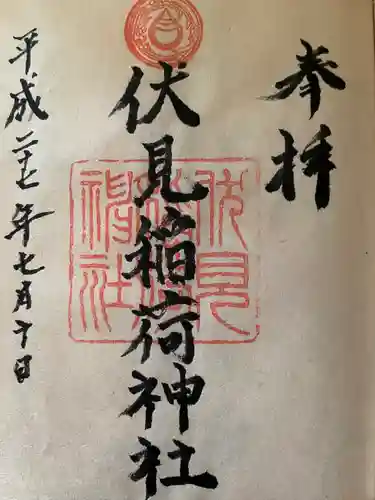 奉拝
伏見稲荷神社
平成二十七年七月十日
伏見稲荷神社